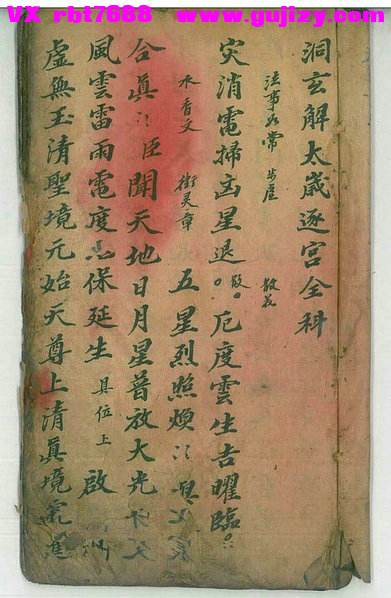 VX rbt7688 www.gujizy.com
洞玄解太歲逐宫全科
法事如常 步虛 散花
災消電掃凶星退。散。厄度雲生吉曜臨。
水香文 衛灵章 五星烈照煥
合真 臣聞天地日月星普放大光
風雲雷雨電度 保延生 具位上 啟
虛無玉清聖境元始天尊上清真境